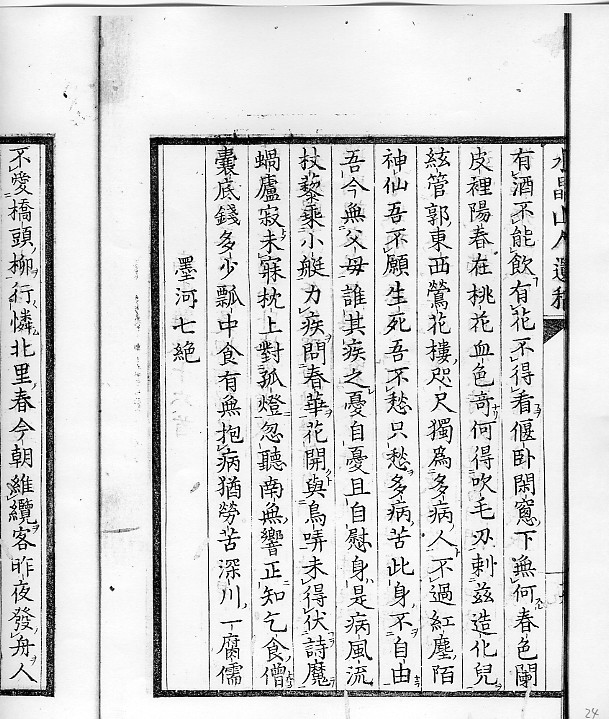 水晶山人遺稿
有酒不能飲有花不得看偃臥閑窻下無何春色闌
皮裡陽春在桃花血色奇何得吹毛刃刺茲造化兒
絃管郭東西鶯花樓咫尺獨為多病人不過紅塵陌
神仙吾不願生死吾不愁只愁多病苦此身不自由
吾今無父母誰其疾之憂自憂且自慰身是病風流
杖藜乘小艇力疾問春華花開與鳥哢未得伏詩魔
蝸廬寂未寐枕上對孤燈忽聽南無響正知乞食僧
囊底錢多少瓢中食有無抱病猶勞苦深川一腐儒
墨河七絶
不愛橋頭柳行憐北里春今朝維纜客昨夜發舟人
24